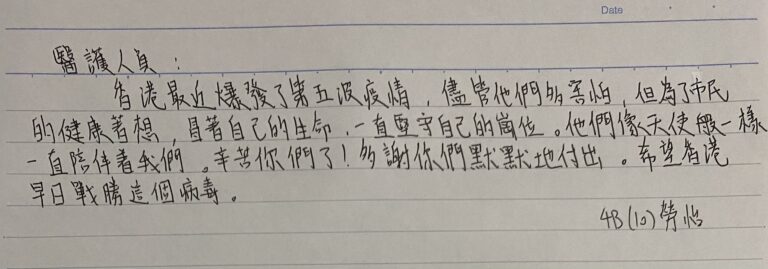 Date
醫護人員：
香港最近爆發了第五波疫情，儘管他們多害怕，但為了市民
的健康著想，冒著自己的生命，一直堅守自己的崗位。他們像天使般一樣
一直陪伴着我們。辛苦你們了！多謝你們默默地付出。希望香港
早日戰勝這個病毒。
4B(10)勞怡